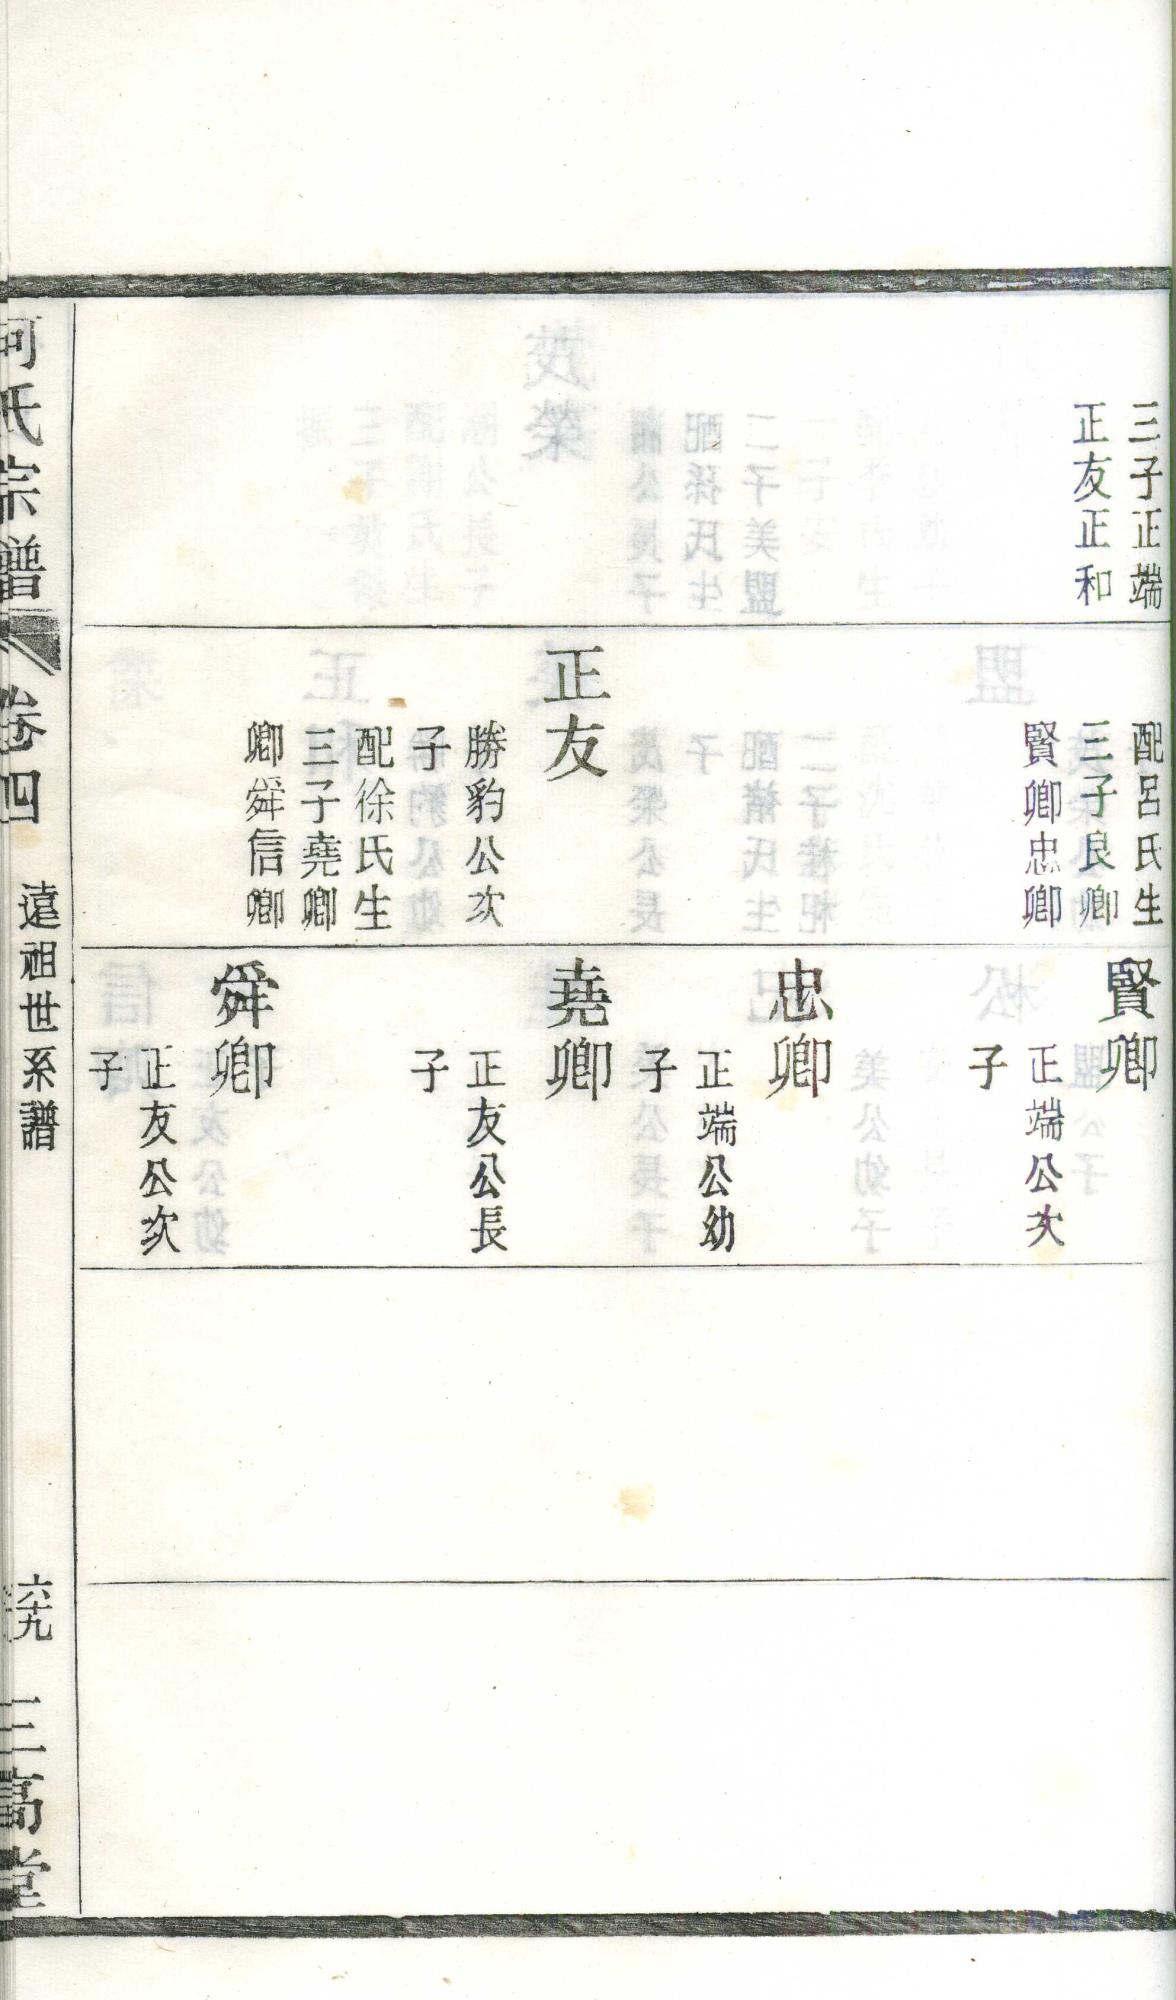 三子正端
正友正和
配呂氏生
三子良卿
賢卿忠卿
正友
勝豹公次
子
配徐氏生
三子堯卿
卿舜信卿
賢卿
正端公次
子
忠卿
正端公幼
子
堯卿
正友公長
子
舜卿
正友公次
子
何氏宗譜
卷四
遠祖世系譜
六十九
三高堂